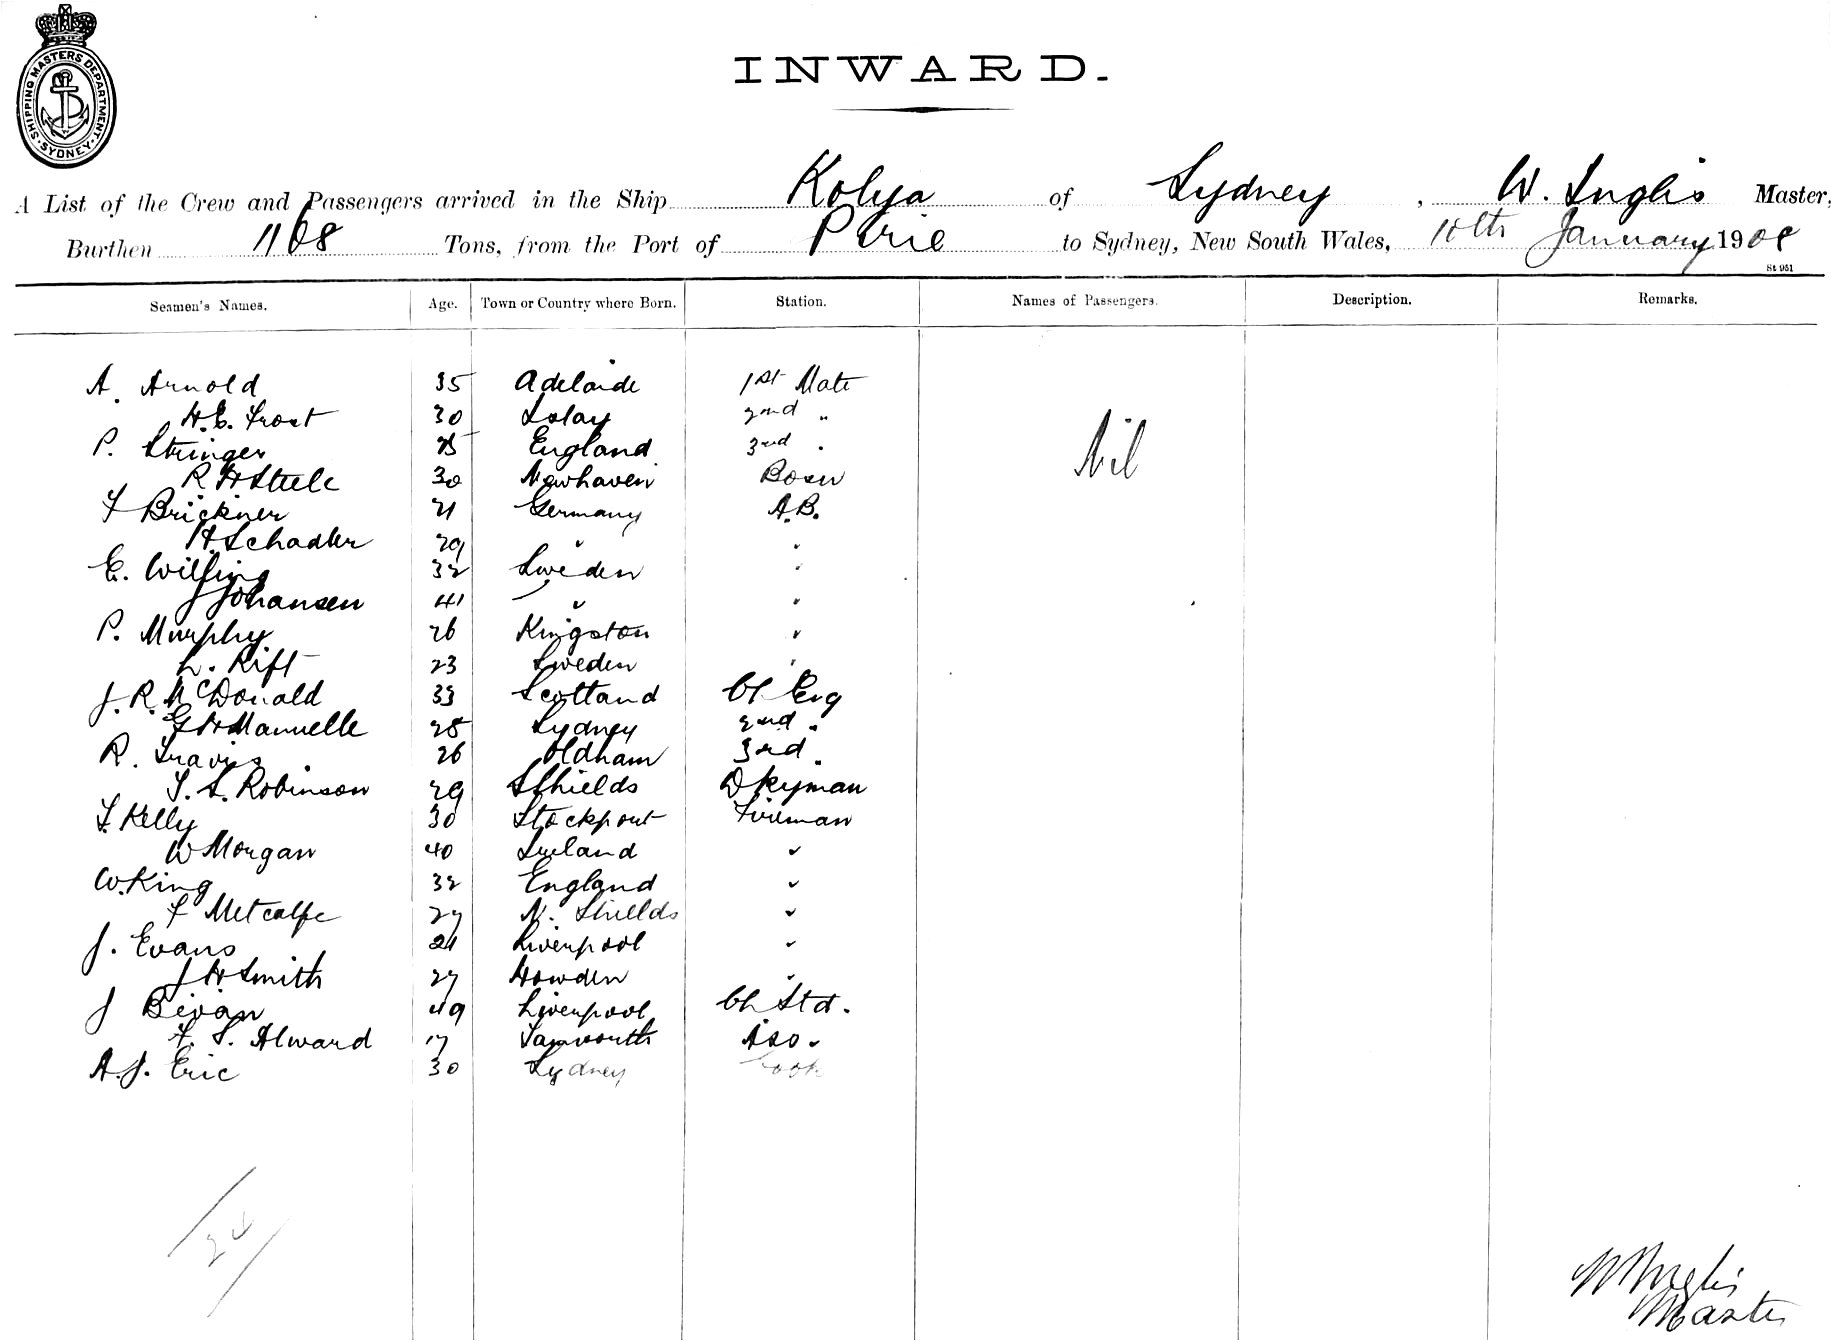 SHIPPING MASTERS DEPARTMENT. SYDNEY
INWARD.
A List of the Crew and Passengers arrived in the Ship Kolya of Sydney, W. Inglis Master,
Burthen 1168 Tons, from the Port of Pirie to Sydney, New South Wales, 10th January 1908
St 951
Seamen's Names. Age. Town or Country where Born. Station. Names of Passengers. Description. Remarks.
A. Arnold 35 Adelaide 1st Mate
H.E. Frost 30 Islay 2nd "
P. Stringer 25 England 3rd "
Nil
R H Steele 30 Newhaven Bosn
F Brickner 21 Germany A.B.
H Schadler 29 " "
E. Wilfing 32 Sweden "
J Johansen 41 " "
P. Murphy 26 Kingston "
L. Rift 23 Sweden "
J. R. McDonald 33 Scotland Ch Eng
G H Manuelle 28 Sydney 2nd "
R. Travis 26 Oldham 3rd "
T. S. Robinson 29 S Shields Dkyman
F. Kelly 30 Stockport Fireman
W Morgan 40 Ireland "
W. King 32 England "
F Metcalfe 27 N. Shields "
J. Evans 21 Liverpool "
J H Smith 27 Howden "
J Bevan 49 Liverpool Ch Std.
F. S. Alward 17 Tamworth Asst
A. J. Eric 30 Sydney Cook
24
W Inglis
Master